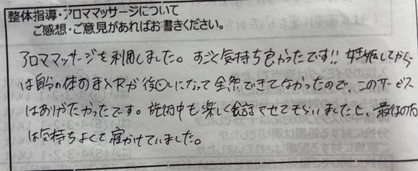 整体指導・アロママッサージについて
ご感想・ご意見があればお書きください。
アロママッサージを利用しました。すごく気持ち良かったです!! 妊娠してから
は自分の体の手入れが後回しになって全然できてなかったので、このサービス
はありがたかったです。施術中も楽しく会話させてもらいましたし、最後の方
は気持ちよくて寝かけていました。